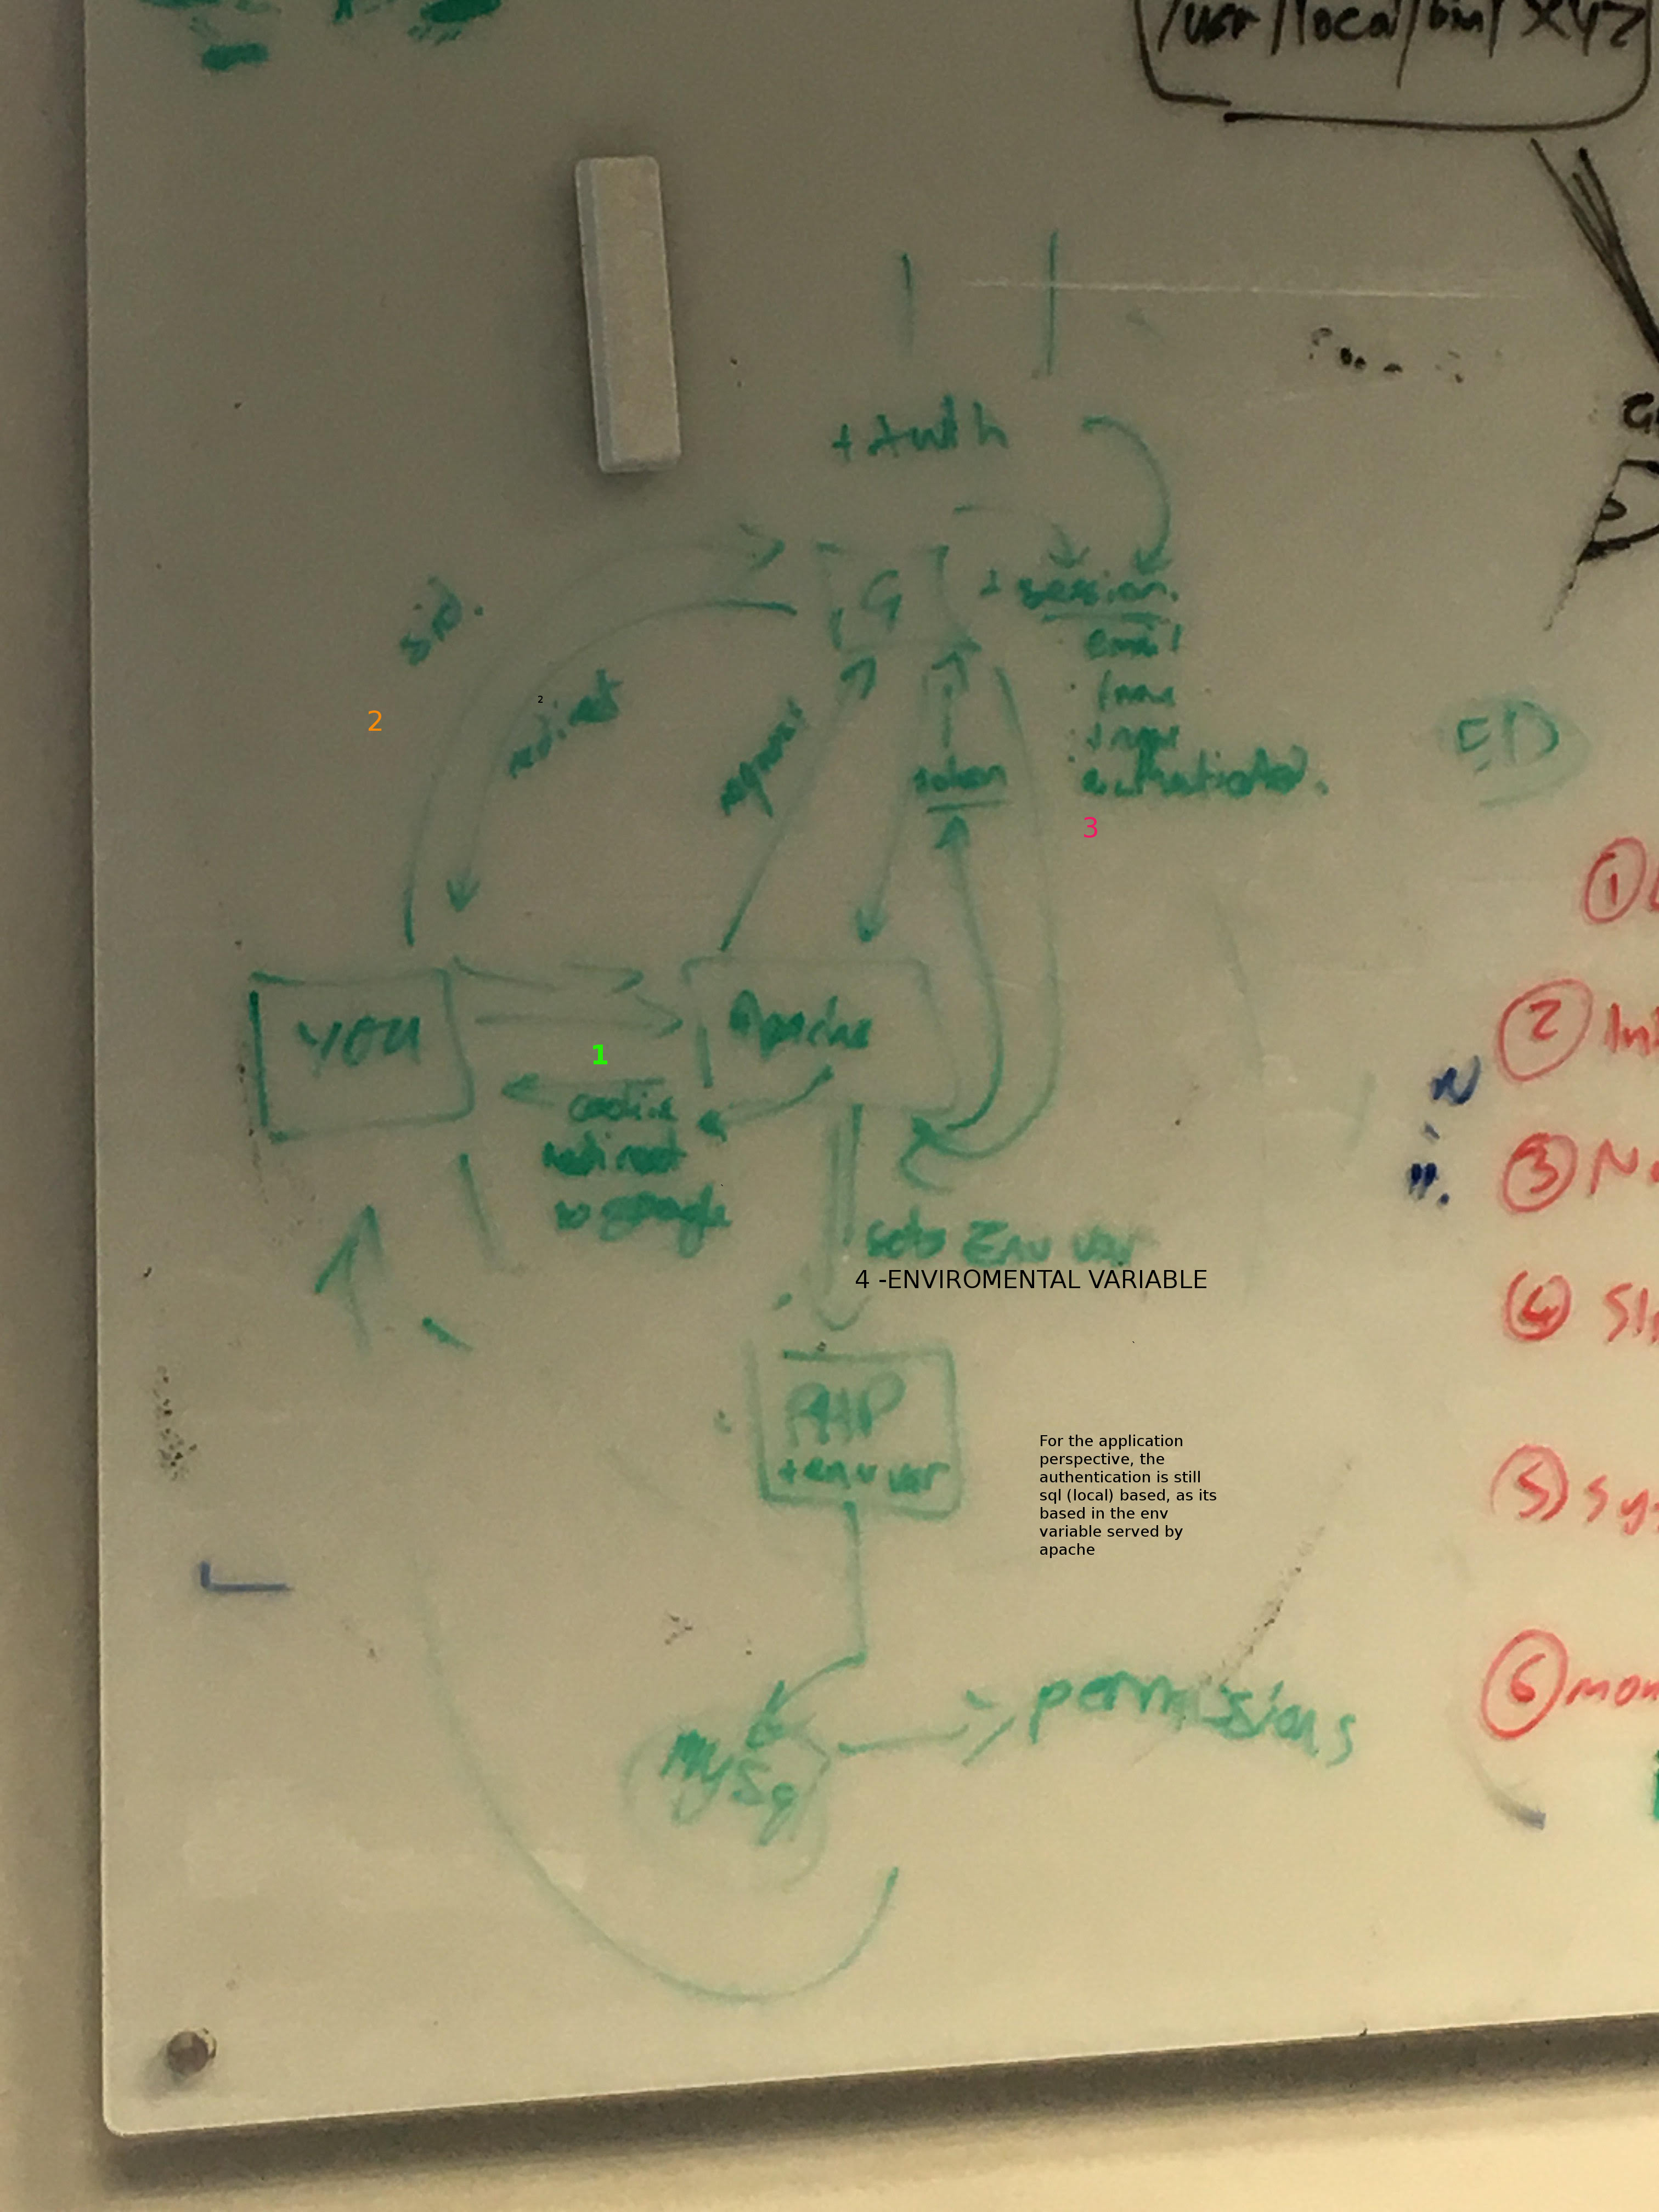 /usr/local/bin/XYZ
+ Auth
G
+ session.
email
fname
authenticated.
sid.
2
2
redirect
request
token
3
①
YOU
Apache
1
cookie
redirect
to google
②
③
sets Env var
4 -ENVIROMENTAL VARIABLE
④
PHP
+env var
For the application
perspective, the
authentication is still
sql (local) based, as its
based in the env
variable served by
apache
⑤
⑥
permissions
MySq